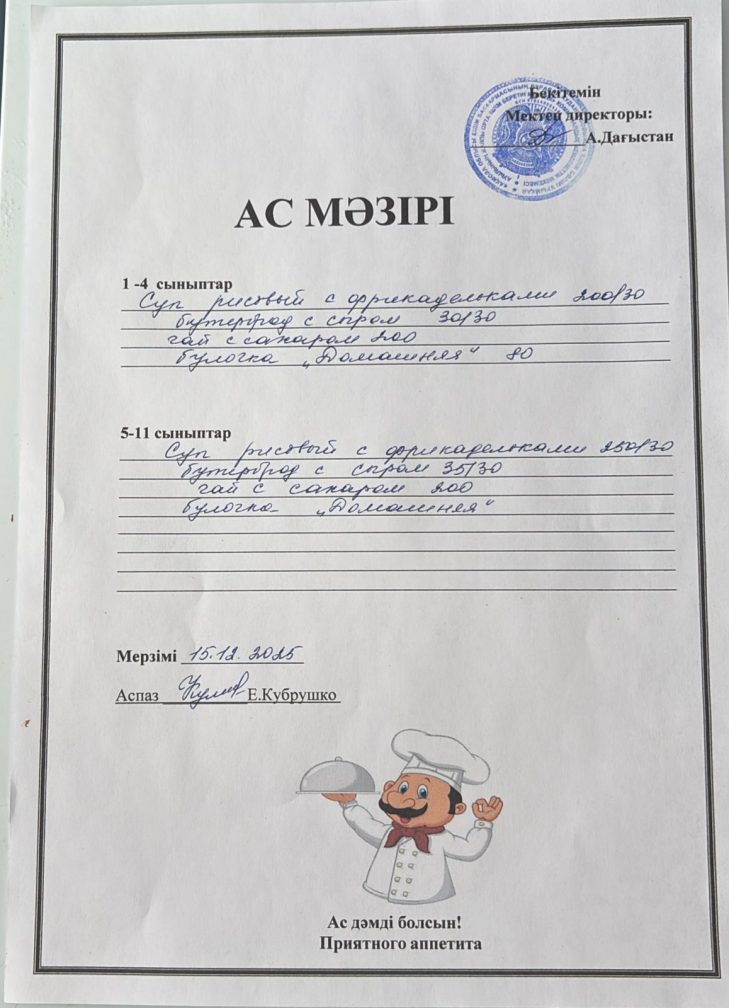 Бекітемін
Мектеп директоры:
А.Дағыстан
АС МӘЗІРІ
1 -4 сыныптар
Суп рисовый с фрикадельками 200/30
бутерброд с сыром 30/30
чай с сахаром 200
булочка „Домашняя" 80
5-11 сыныптар
Суп рисовый с фрикадельками 250/30
бутерброд с сыром 35/30
чай с сахаром 200
булочка „Домашняя"
Мерзімі 15.12.2025
Аспаз Е.Кубрушко
Ас дәмді болсын!
Приятного аппетита